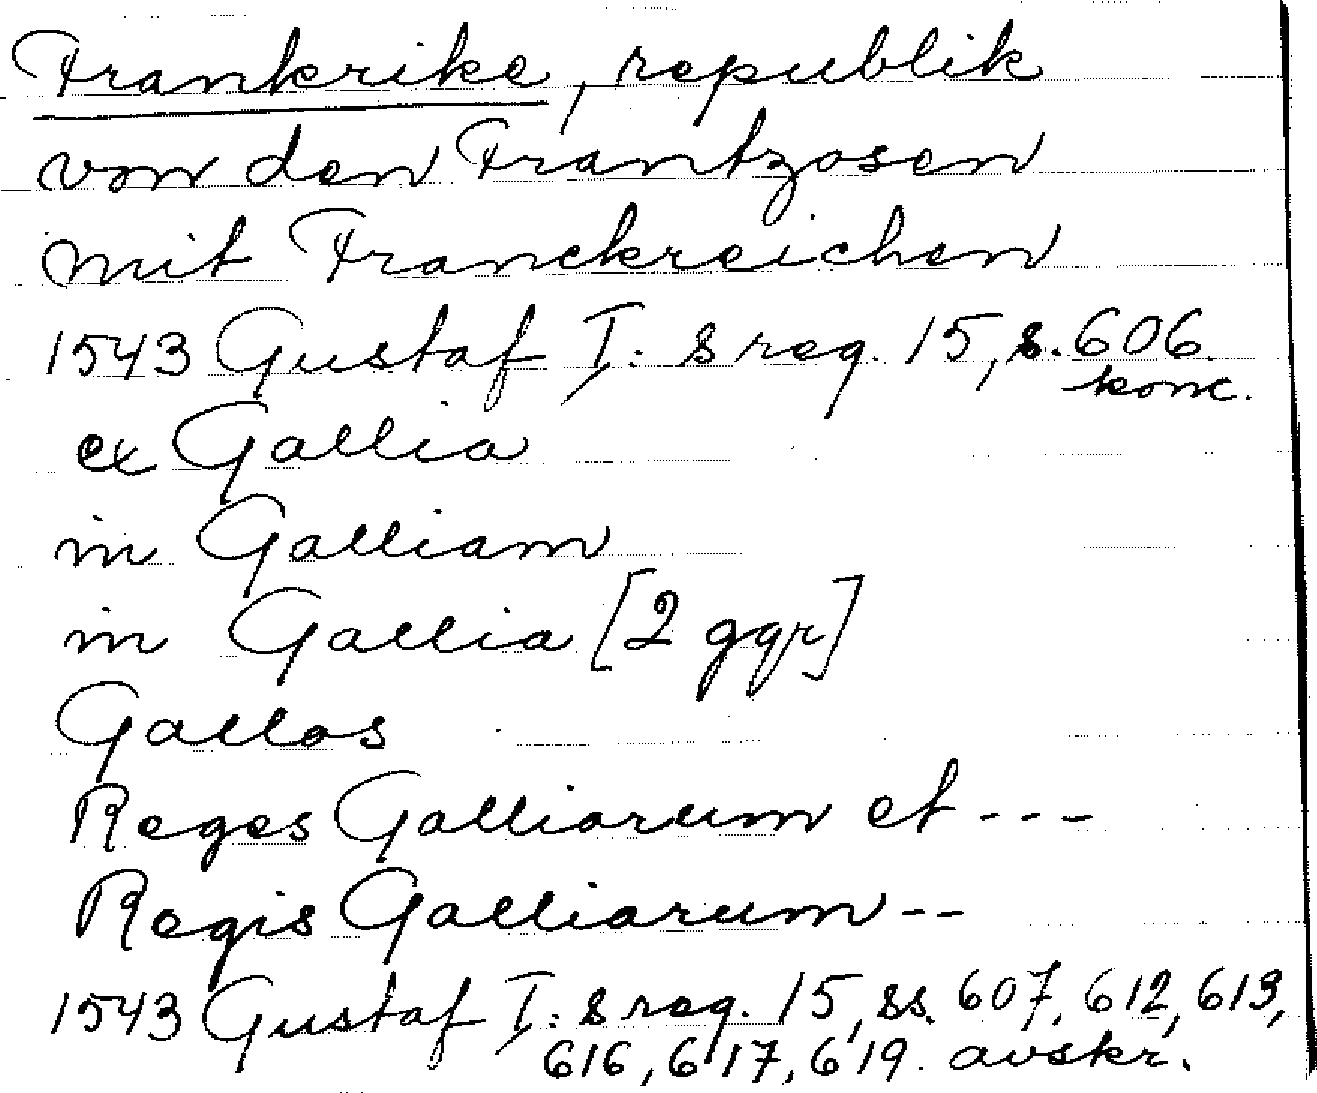 Frankrike, republik
von den Frantzosen
mit Franckreichen
1543 Gustaf I:s reg. 15, s. 606.
konc.
ex Gallia
in Galliam
in Gallia [2 ggr]
Gallos
Reges Galliarum et ---
Regis Galliarum --
1543 Gustaf I:s reg. 15, ss. 607, 612, 613,
616, 617, 619. avskr.